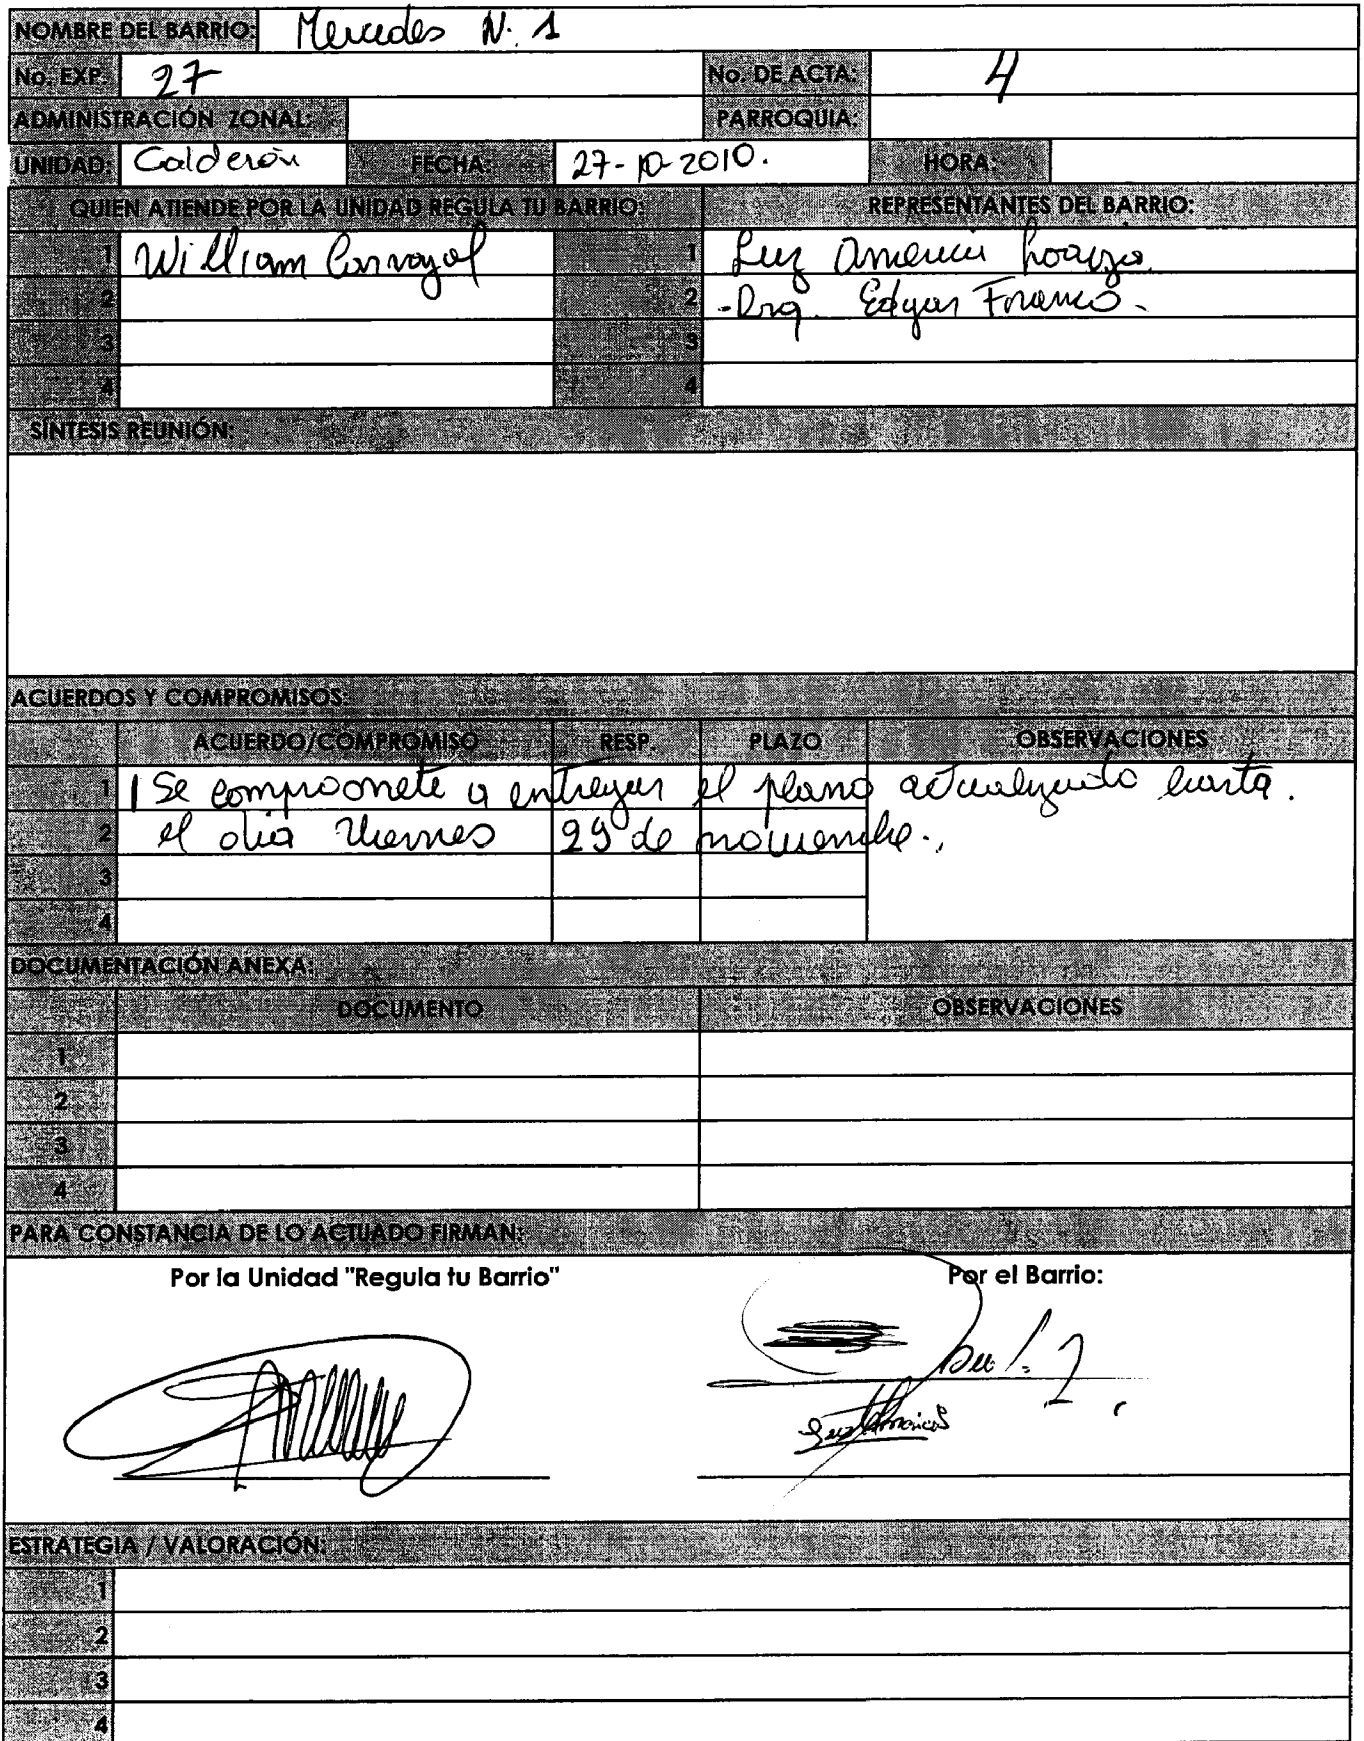 NOMBRE DEL BARRIO: Mercedes N. 1
No. EXP. 27 No. DE ACTA: 4
ADMINISTRACIÓN ZONAL: PARROQUIA:
UNIDAD: Calderón FECHA: 27-10-2010. HORA:
QUIEN ATIENDE POR LA UNIDAD REGULA TU BARRIO: REPRESENTANTES DEL BARRIO:
1 William Carvajal 1 Luz America
2 2 - Edgar Franco -
3 3
4 4
SÍNTESIS REUNIÓN:
ACUERDOS Y COMPROMISOS:
ACUERDO/COMPROMISO RESP. PLAZO OBSERVACIONES
1 Se compromete a entregar el plano actualizado
2 el dia viernes 29 de noviembre.
3
4
DOCUMENTACIÓN ANEXA:
DOCUMENTO OBSERVACIONES
1
2
3
4
PARA CONSTANCIA DE LO ACTUADO FIRMAN:
Por la Unidad "Regula tu Barrio" Por el Barrio:
ESTRATEGIA / VALORACIÓN:
1
2
3
4